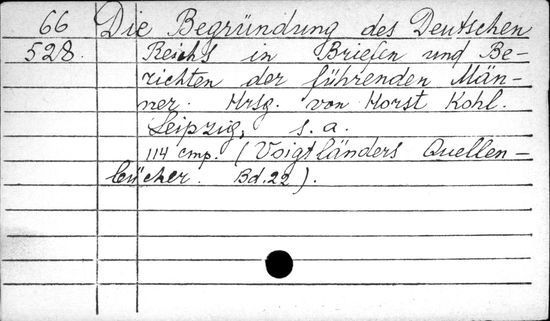 66 Die Begründung des Deutschen
528. Reichs in Briefen und Be-
richten der führenden Män-
ner. Hrsg. von Horst Kohl.
Leipzig, s. a.
114 стр. (Voigtländers Quellen-
bücher. Bd. 22).